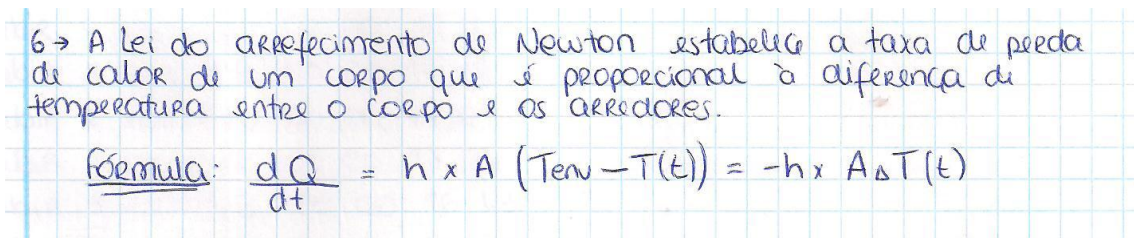 6→ A Lei do arrefecimento de Newton estabelece a taxa de perda
de calor de um corpo que é proporcional à diferença de
temperatura entre o corpo e os arredores.
Fórmula: dQ/dt = h x A (Tenv - T(t)) = -h x A Δ T(t)